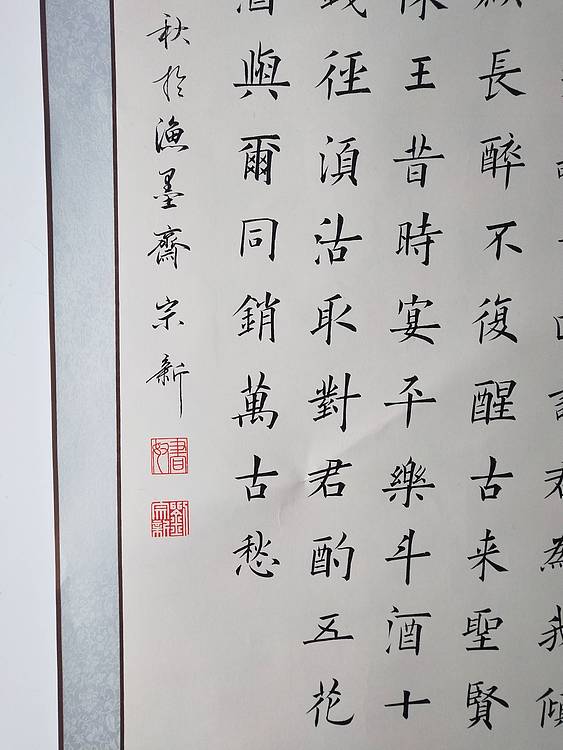 君為我傾
長醉不復醒古来聖賢
陳王昔時宴平樂斗酒十
徑湏沽取對君酌五花
酒與爾同銷萬古愁
秋於漁墨齋宗新
書奴